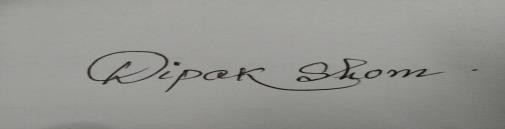 Dipak Shom